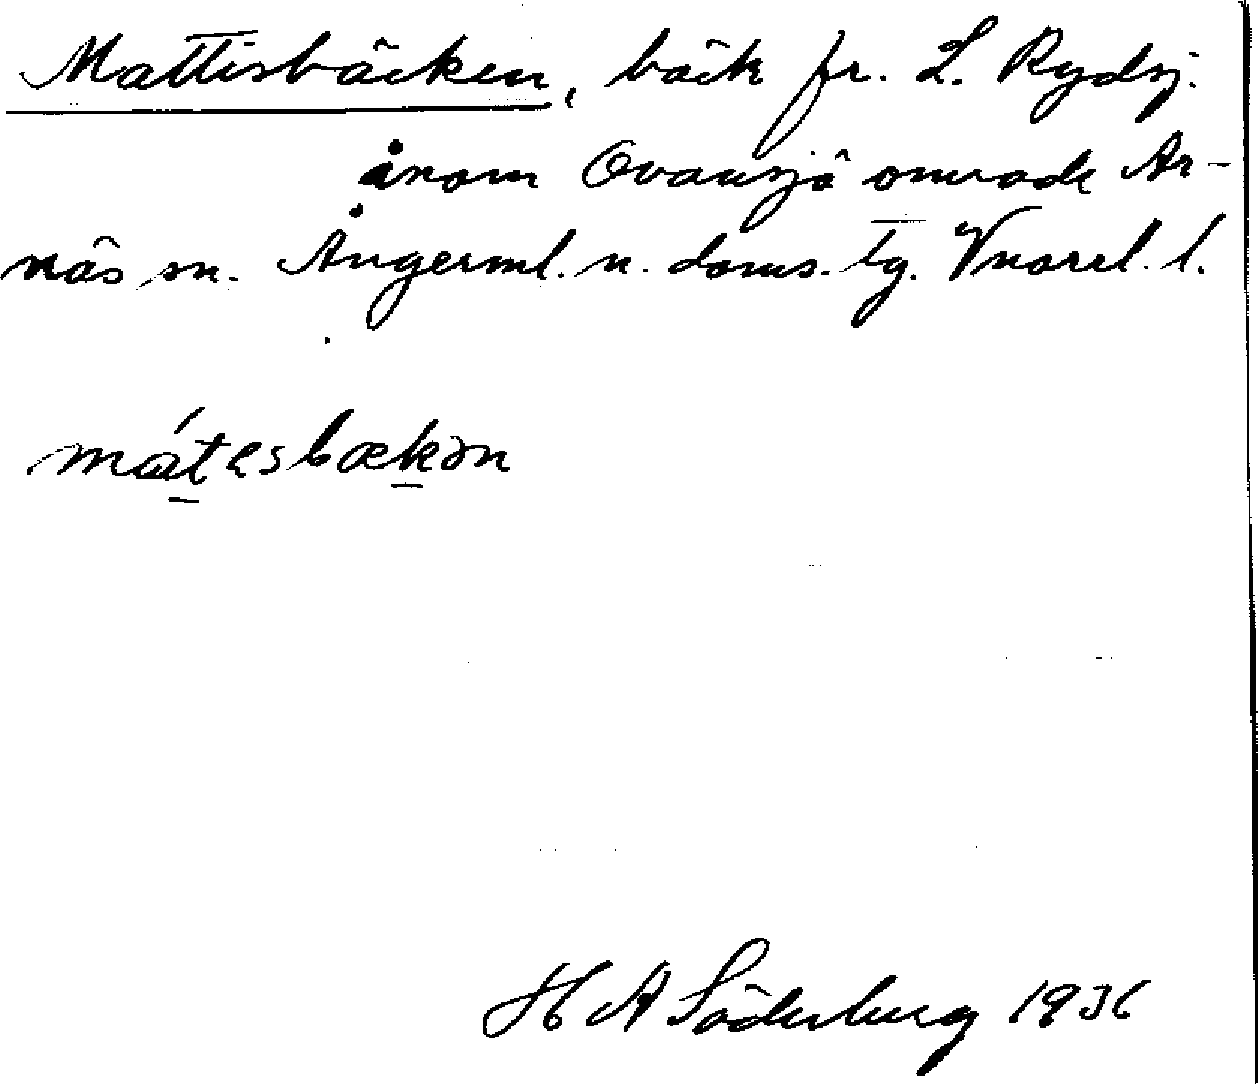 Mattisbäcken, bäck fr. L. Rydsj.
ånom Ovansjö område Ar-
näs sn. Ångerml. n. doms. tg. Vnorrl. l.
mátesbækən
H A Söderberg 1936